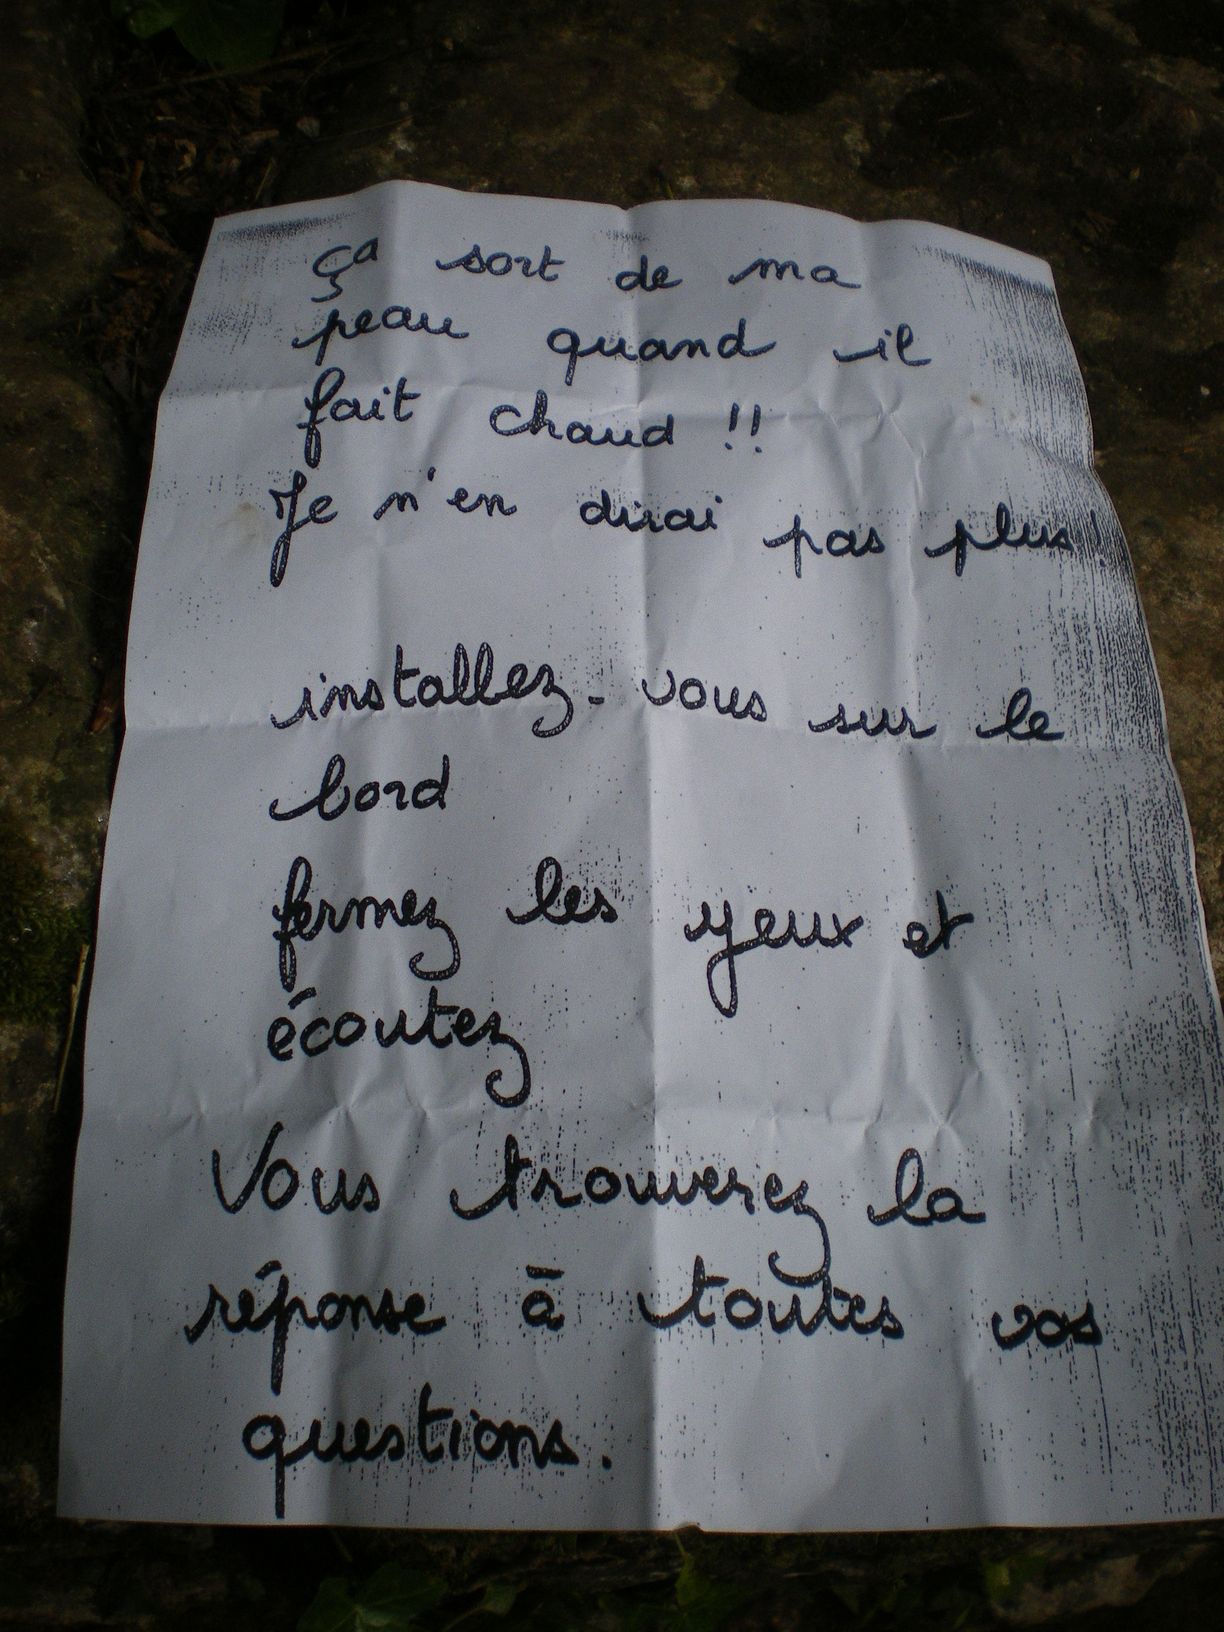 ça sort de ma
peau quand il
fait chaud !!
Je n'en dirai pas plus!
installez-vous sur le
bord
fermez les yeux et
écoutez
Vous trouverez la
réponse à toutes vos
questions.